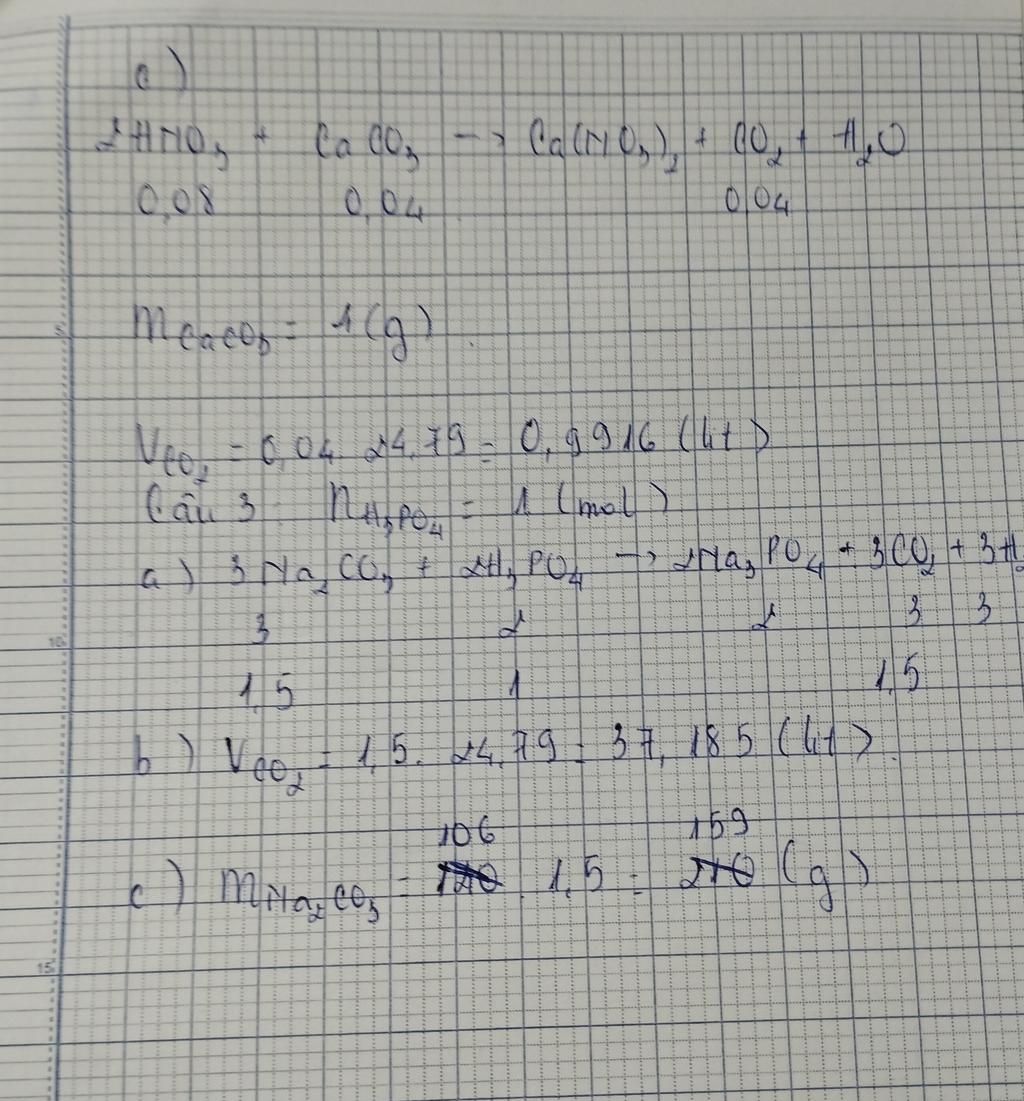 c)
2HNO₃ + CaCO₃ → Ca(NO₃)₂ + CO₂ + H₂O
0,08 0,04 0,04
5
mCaCO₃ = 1 (g)
VCO₂ = 0,04. 24,79 = 0,9916 (lít)
Câu 3: nH₃PO₄ = 1 (mol)
a) 3Na₂CO₃ + 2H₃PO₄ → 2Na₃PO₄ + 3CO₂ + 3H₂
10 3 2 2 3 3
1,5 1 1,5
b) VCO₂ = 1,5. 24,79 = 37,185 (lít).
106 159
c) mNa₂CO₃ = . 1,5 = (g)
15